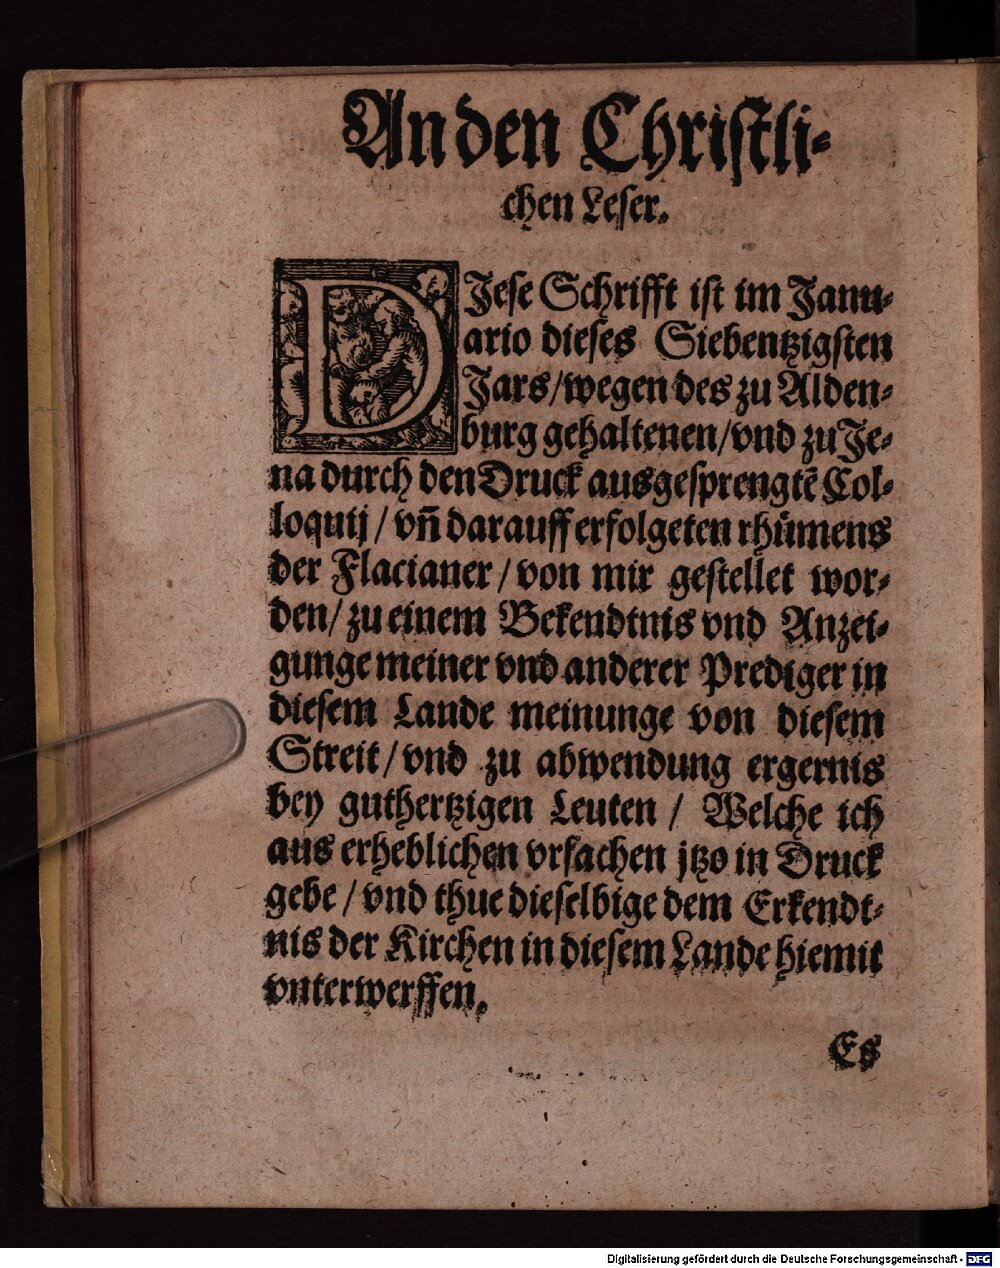 An den Christli-
chen Leser.
DJese Schrifft ist im Janu-
ario dieses Siebentzigsten
Jars/wegen des zu Alden-
burg gehaltenen/vnd zu Je-
na durch den Druck ausgesprengtē Col-
loquij/vñ darauff erfolgeten rhümens
der Flacianer/von mir gestellet wor-
den/zu einem Bekendtnis vnd Anzei-
gunge meiner vnd anderer Prediger in
diesem Lande meinunge von diesem
Streit/vnd zu abwendung ergernis
bey guthertzigen Leuten/Welche ich
aus erheblichen vrsachen jtzo in Druck
gebe/vnd thue dieselbige dem Erkendt-
nis der Kirchen in diesem Lande hiemit
vnterwerffen.
Es
Digitalisierung gefördert durch die Deutsche Forschungsgemeinschaft - DFG